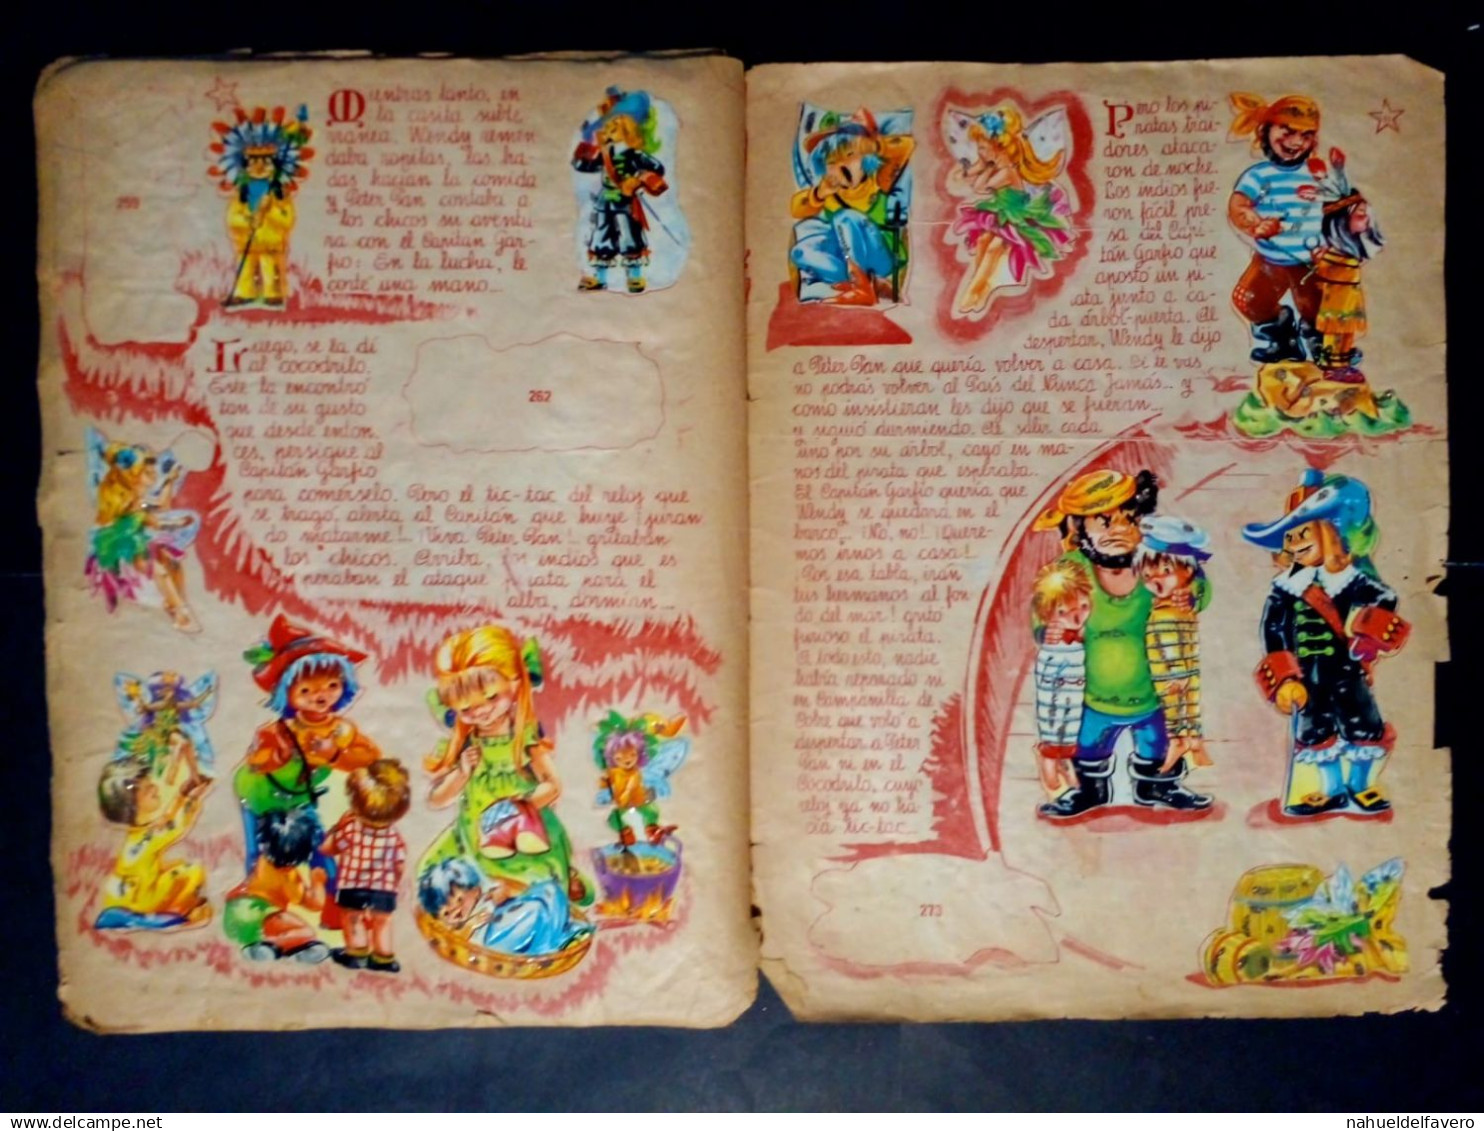 Mientras tanto, en
la casita subte
rránea. Wendy remen
daba ropitas, las ha-
das hacían la comida
y Peter Pan contaba a
los chicos su aventu
ra con el Capitán Gar-
fio: En la lucha, le
corté una mano...
259
Luego, se la dí
al cocodrilo.
Este la encontró
tan de su gusto
que desde enton
ces, persigue al
Capitán Garfio
para comérselo. Pero el tic-tac del reloj que
se tragó, alerta al Capitán que huye ¡juran
do matarme!. ¡Viva Peter Pan!. gritaban
los chicos. Arriba, los indios que es
peraban el ataque pirata para el
alba, dormían...
262
Pero los pi-
ratas trai-
dores ataca-
ron de noche.
Los indios fue-
ron fácil pre-
sa del Capi-
tán Garfio que
apostó un pi-
rata junto a ca-
da árbol-puerta. Al
despertar, Wendy le dijo
a Peter Pan que quería volver a casa. Si te vas
no podrás volver al País del Nunca Jamás... y
como insistieran les dijo que se fueran...
y siguió durmiendo. Al salir cada
uno por su árbol, cayó en ma-
nos del pirata que esperaba.
El Capitán Garfio quería que
Wendy se quedara en el
barco... ¡No, no! ¡Quere-
mos irnos a casa!
¡Por esa tabla, irán
tus hermanos al fon
do del mar! gritó
furioso el pirata.
A todo esto, nadie
había reparado ni
en Campanilla de
Cobre que voló a
despertar a Peter
Pan ni en el
Cocodrilo, cuyo
reloj ya no ha
cía tic-tac...
273
delcampe.net
nahueldelfavero